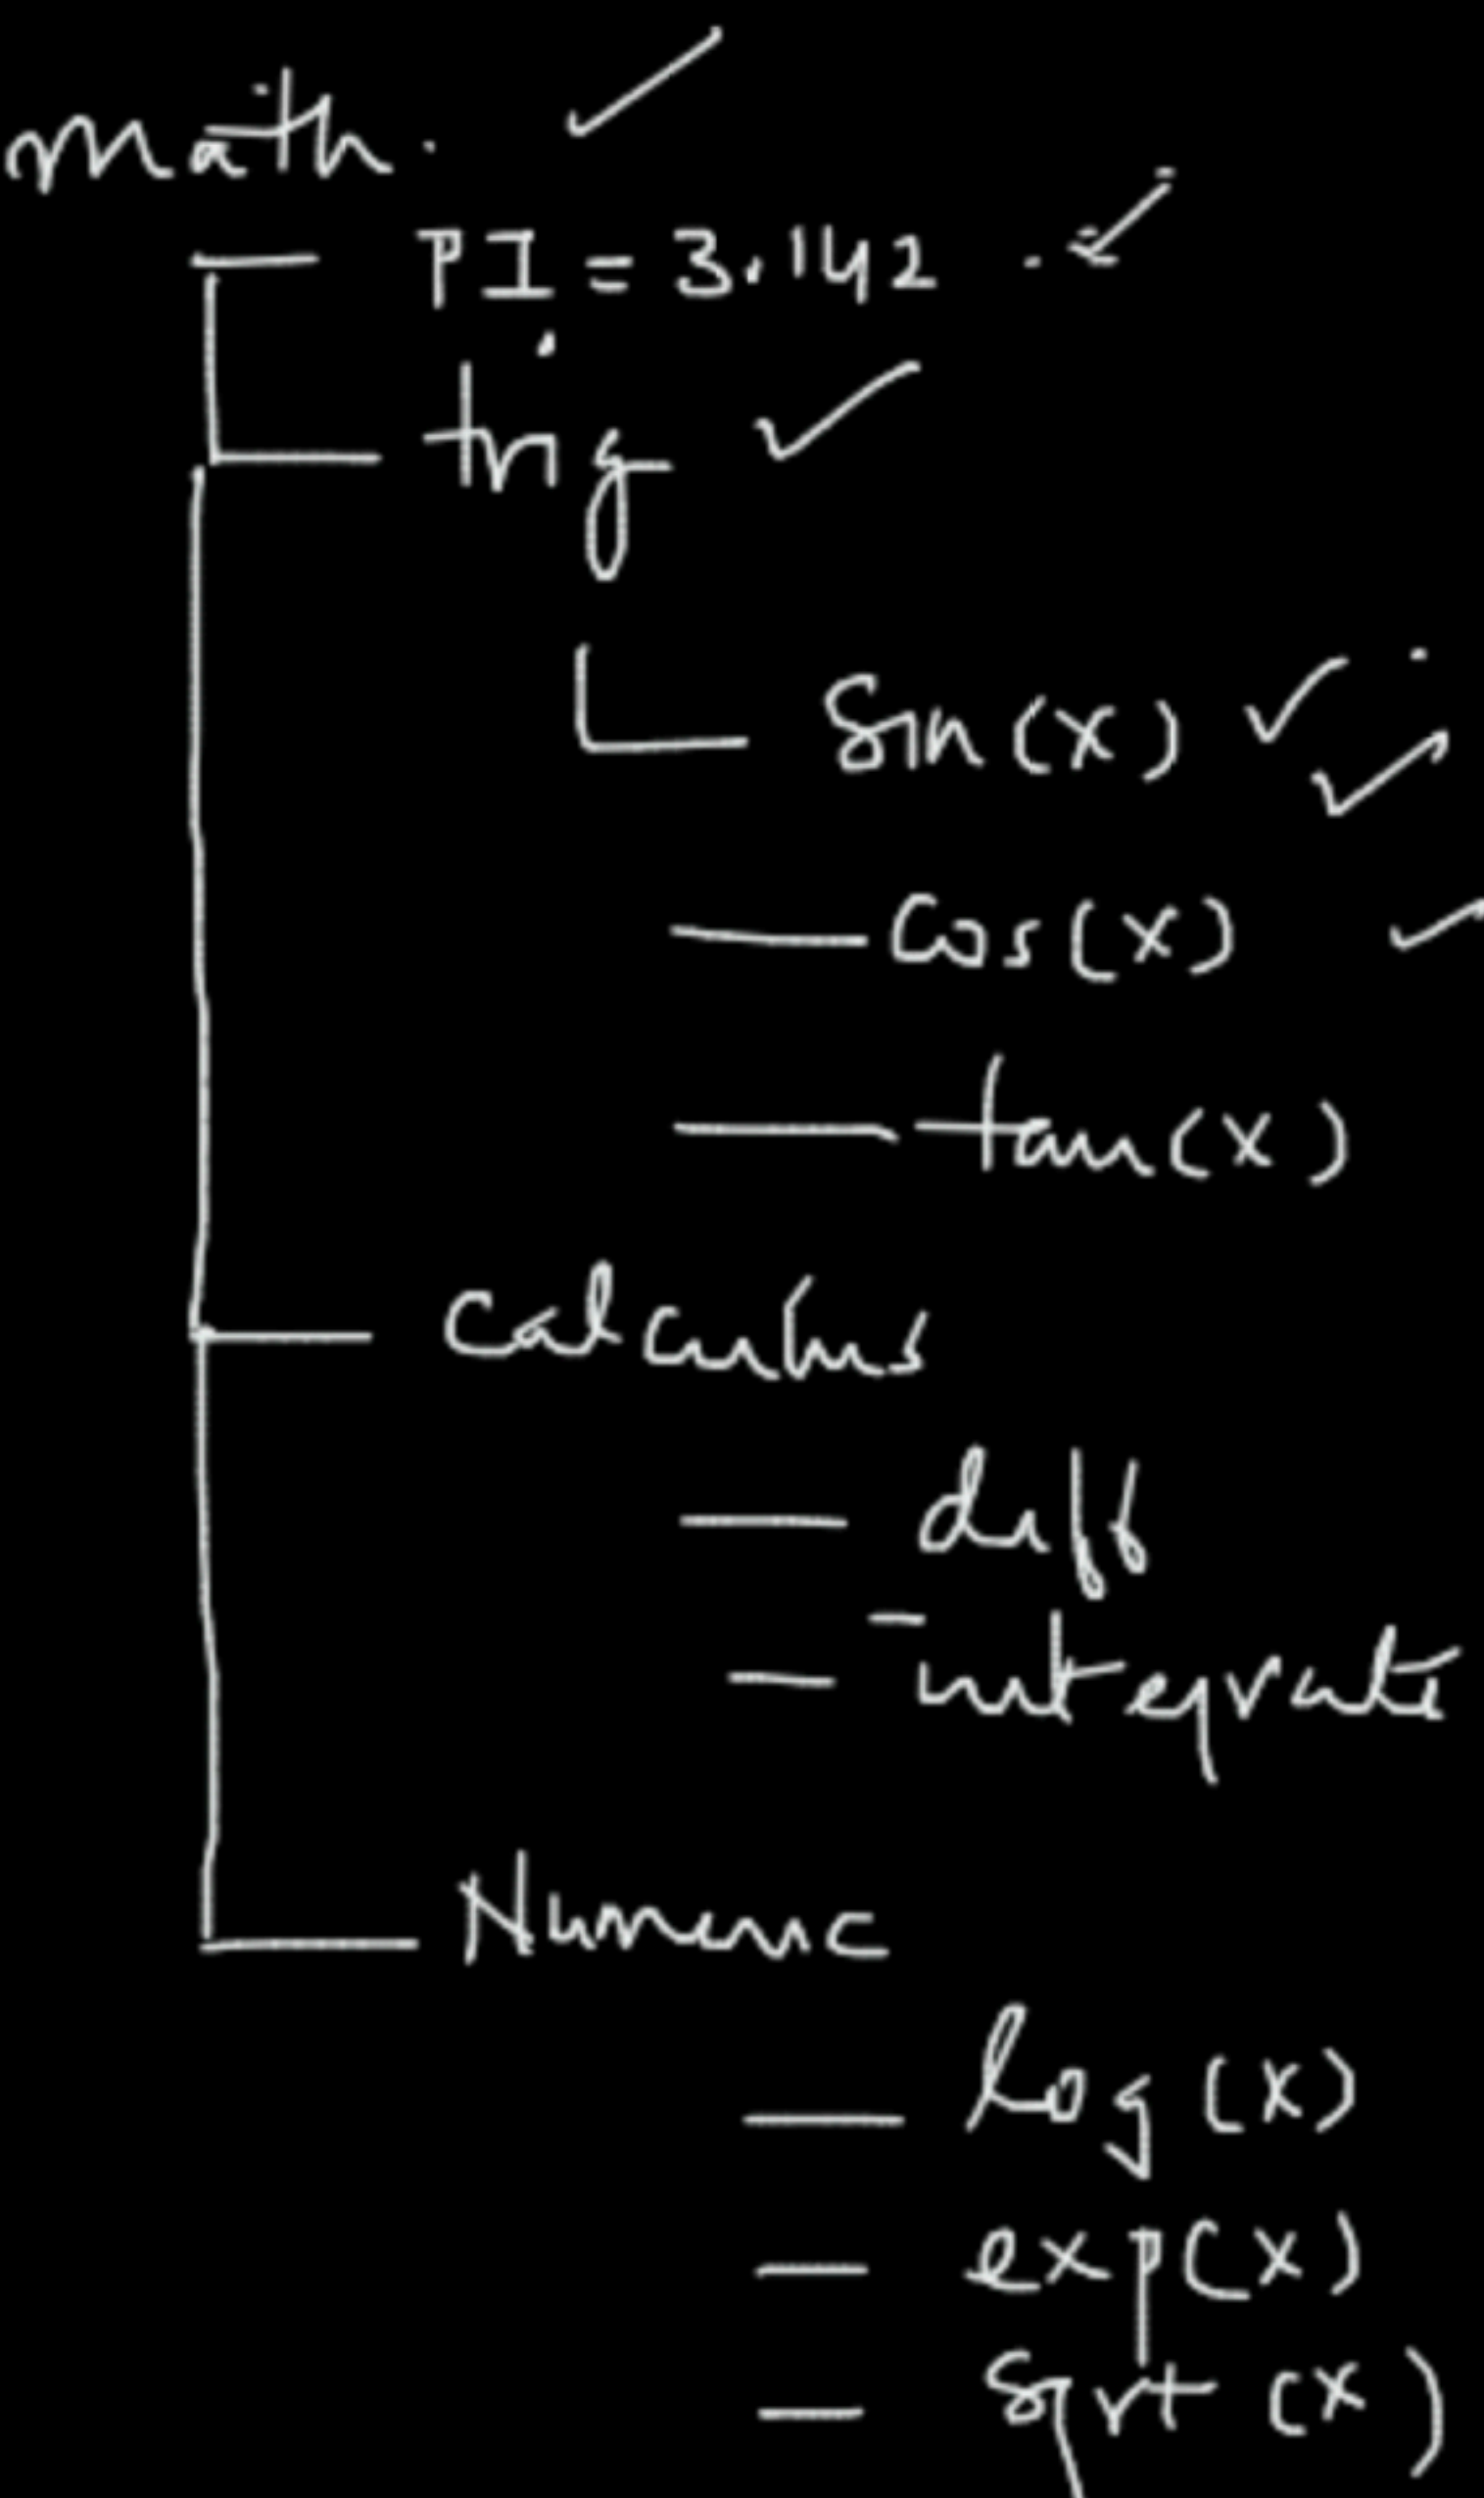 math.
PI = 3.142
trig
sin(x)
cos(x)
tan(x)
calculus
diff
integrate
Numeric
log(x)
exp(x)
sqrt(x)